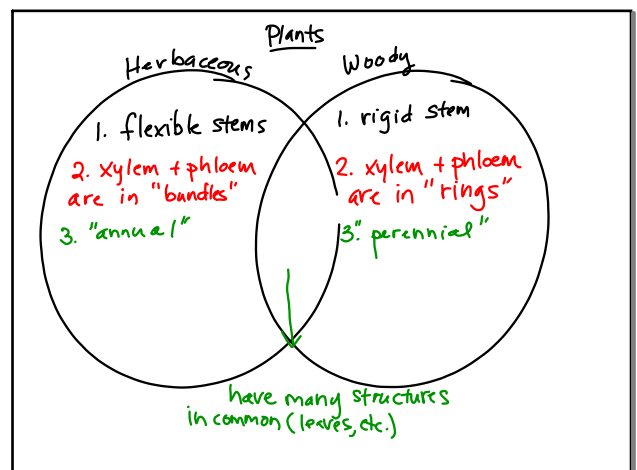 Plants
Herbaceous
Woody
1. flexible stems
2. xylem + phloem
are in "bundles"
3. "annual"
1. rigid stem
2. xylem + phloem
are in "rings"
3." perennial"
have many structures
in common (leaves, etc.)